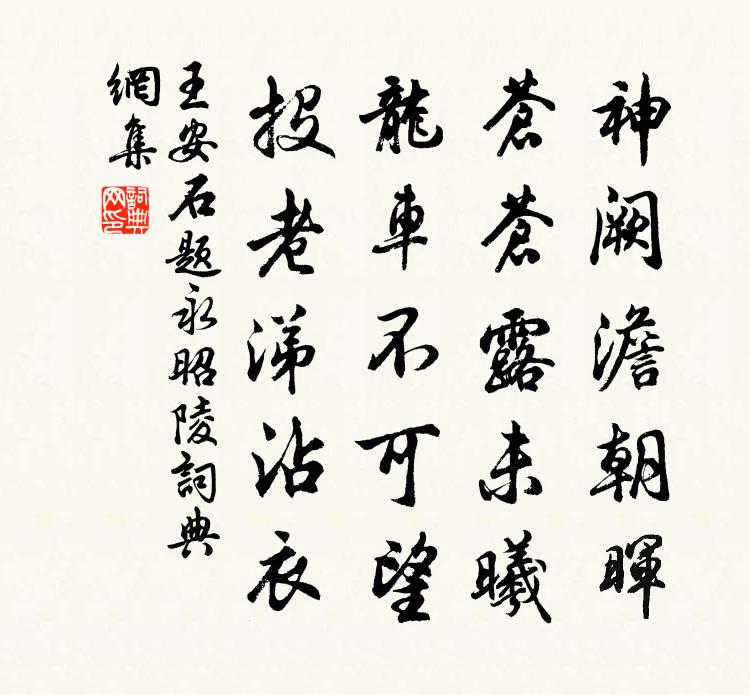 神阙澹朝暉
蒼蒼露未曦
龍車不可望
投老涕沾衣
王安石題永昭陵詞典
網集
詞典
网印